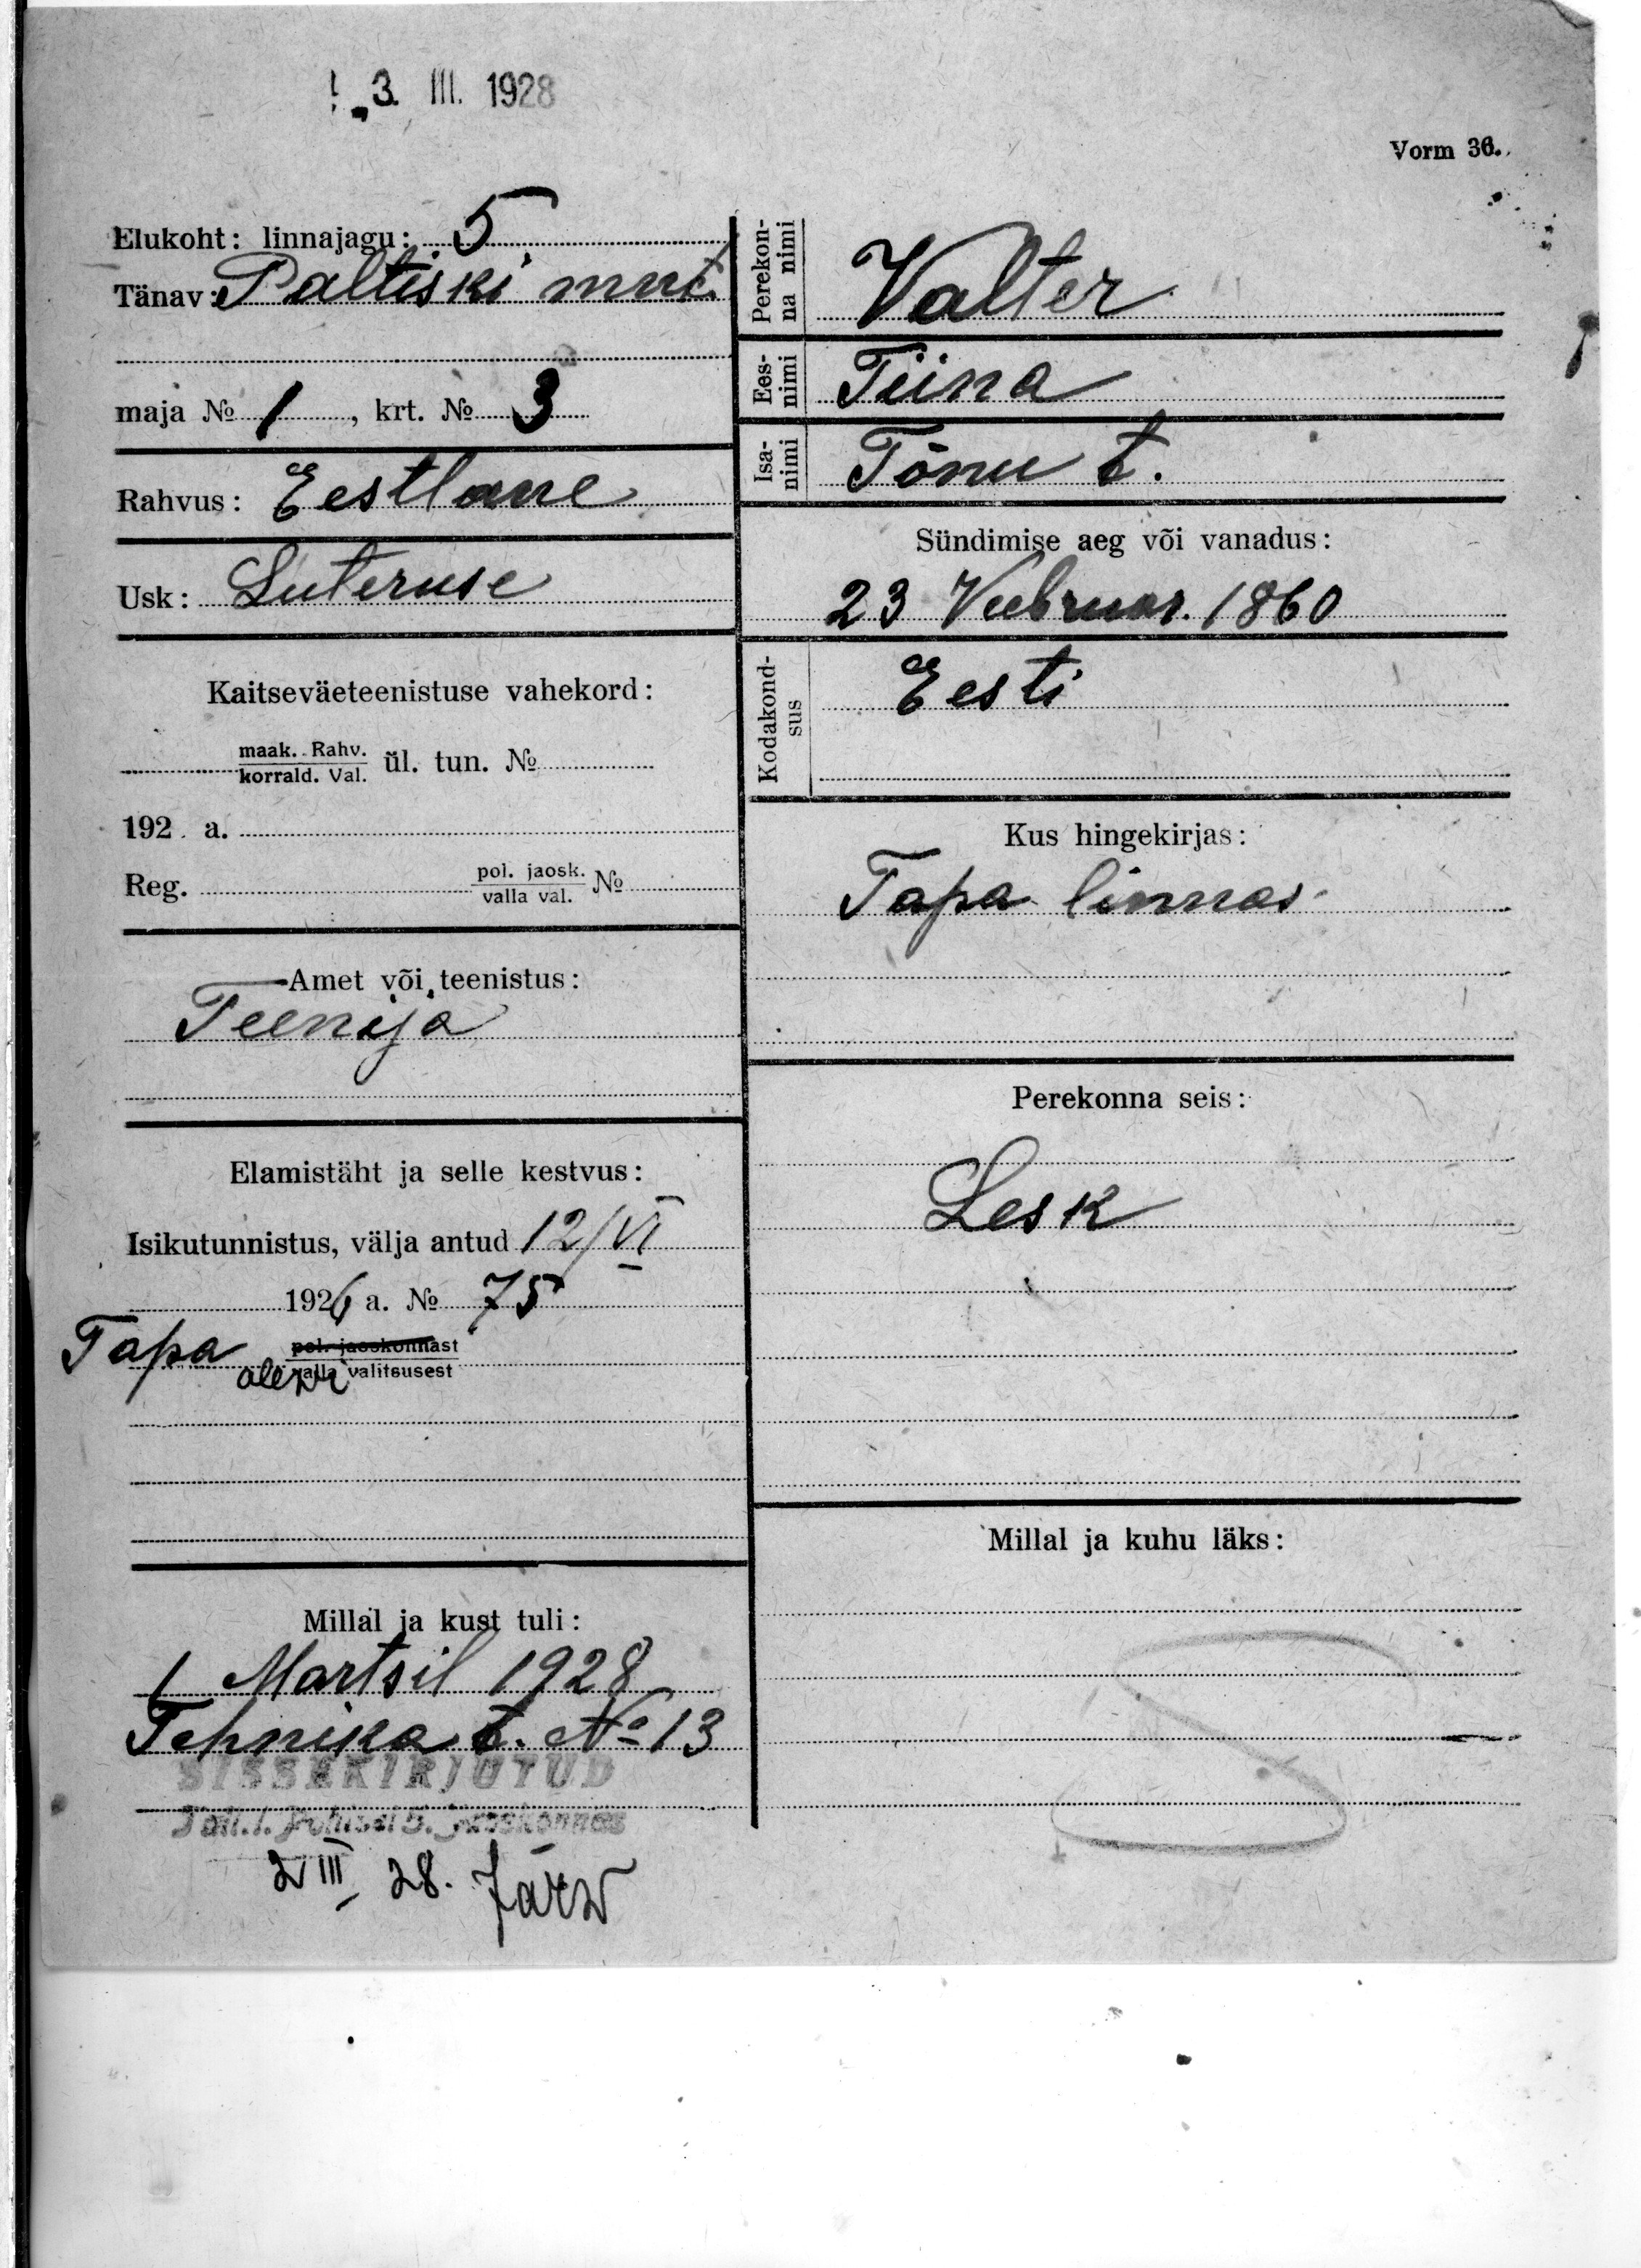 3. III. 1928
Vorm 36.
Elukoht: linnajagu: 5
Tänav: Paltiski mnt.
maja № 1, krt. № 3
Rahvus: Eestlane
Usk: Luteruse
Kaitseväeteenistuse vahekord:
maak. Rahv.
korrald. Val. ül. tun. №
192 a.
Reg. pol. jaosk.
valla val. №
Amet või teenistus:
Teenija
Elamistäht ja selle kestvus:
Isikutunnistus, välja antud 12/VI
1926 a. № 75
Tapa pol. jaoskonnast
alevi valla valitsusest
Millal ja kust tuli:
1 Martsil 1928
Tehnika t. № 13
SISSEKIRJUTUD
Tall. l. Politsei 5. jaoskonnas
2 III 28. Järw
Perekon-
na nimi
Valter
Ees-
nimi
Tiina
Isa-
nimi
Tõnu t.
Sündimise aeg või vanadus:
23 Veebruar. 1860
Kodakond-
sus
Eesti
Kus hingekirjas:
Tapa linnas
Perekonna seis:
Lesk
Millal ja kuhu läks: